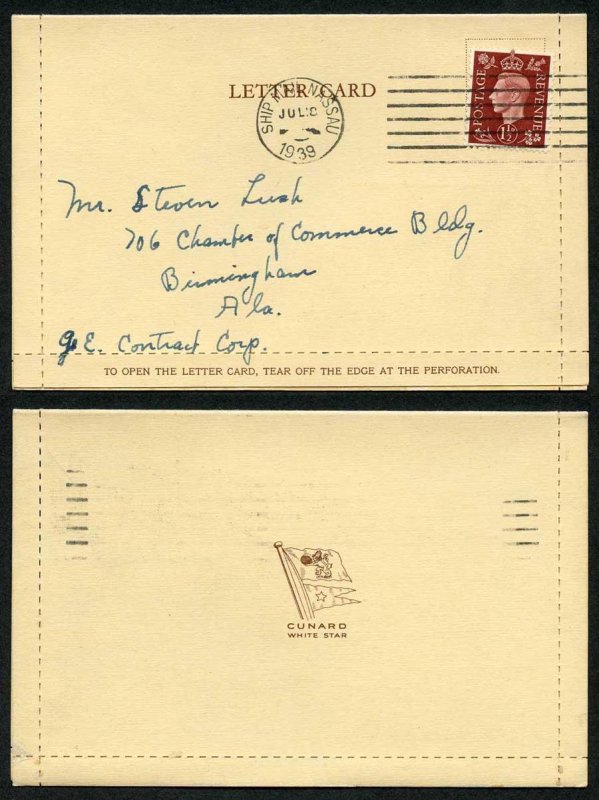 LETTER CARD
POSTAGE
REVENUE
1½D
SHIP MAIL NASSAU
JUL 8
1939
Mr. Steven Lush
706 Chamber of Commerce Bldg.
Birmingham
Ala.
G.E. Contract Corp.
TO OPEN THE LETTER CARD, TEAR OFF THE EDGE AT THE PERFORATION.
CUNARD
WHITE STAR